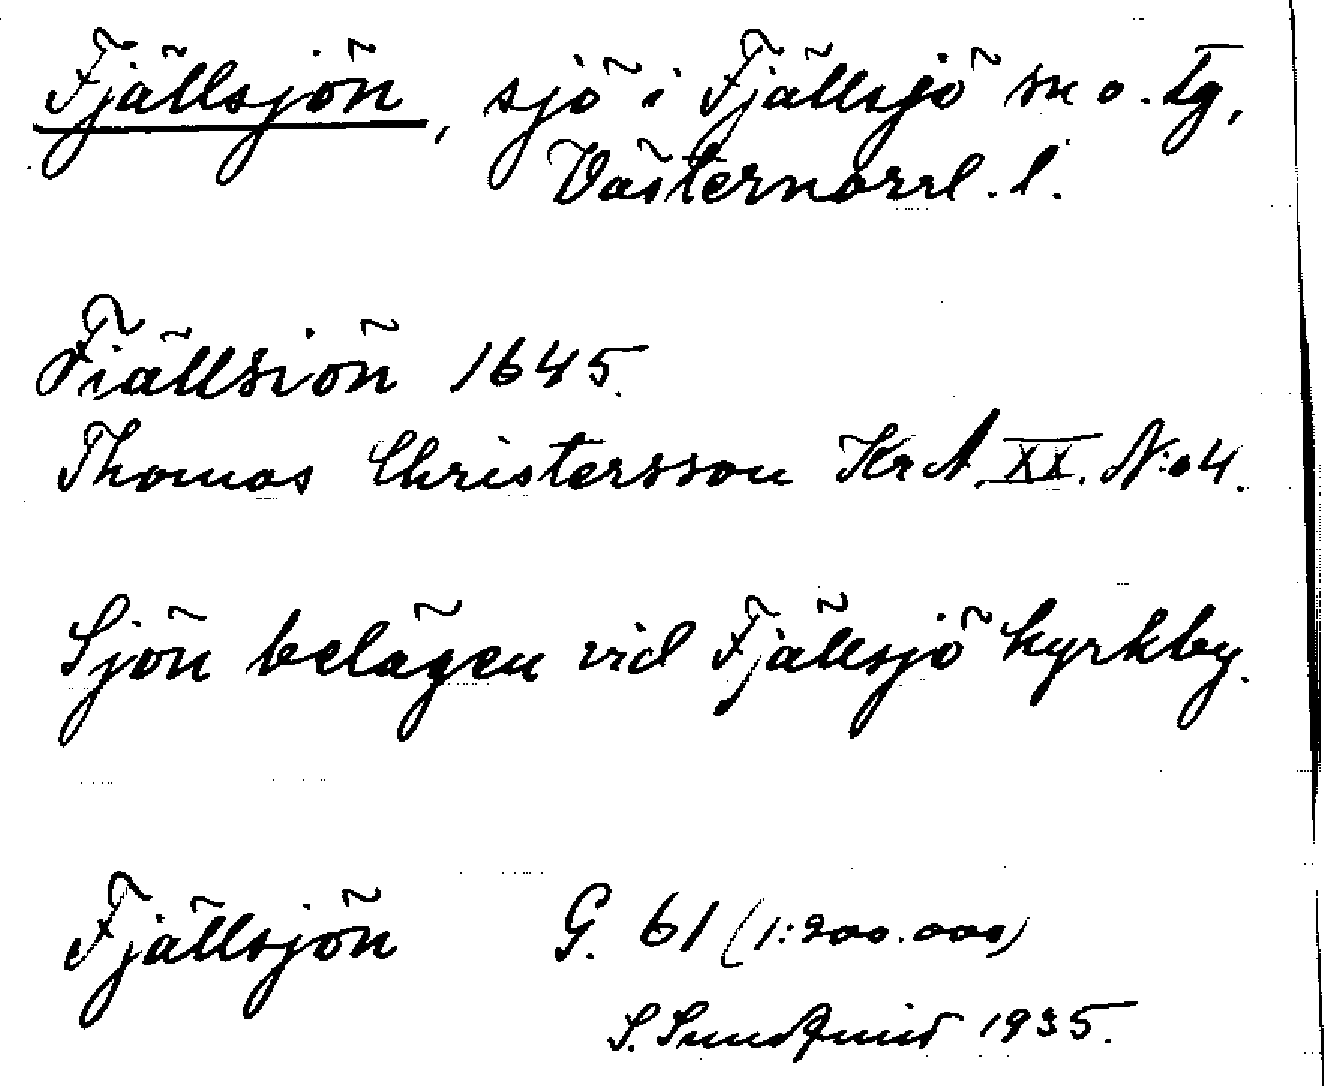 Fjällsjön, sjö i Fjällsjö sn o. tg,
Västernorrl. l.
Fiällsiön 1645.
Thomas Christersson KrA. XX. N:o 4.
Sjön belägen vid Fjällsjö kyrkby.
Fjällsjön G. 61 (1:200.000)
S. Sundqvist 1935.